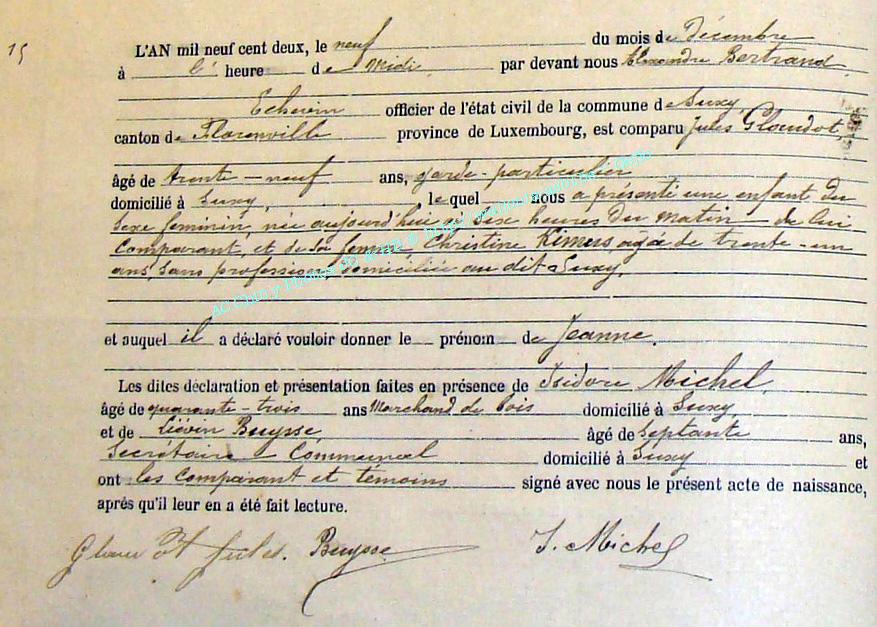 15
L'AN mil neuf cent deux, le neuf du mois de décembre
à l' heure de Midi, par devant nous Alexandre Bertrand,
Echevin officier de l'état civil de la commune de Suxy,
canton de Florenville province de Luxembourg, est comparu Jules Glaudot,
âgé de trente-neuf ans, garde-particulier
domicilié à Suxy, lequel nous a présenté une enfant du
sexe féminin, née aujourd'hui à six heures du matin de lui
Comparant, et de sa femme Christine agée de trente-un
ans, sans profession domiciliée au dit Suxy.
et auquel il a déclaré vouloir donner le prénom de Jeanne.
Les dites déclaration et présentation faites en présence de Isidore Michel,
âgé de quarante-trois ans Marchand de bois domicilié à Suxy,
et de Liévin Buysse, âgé de septante ans,
Secrétaire Communal domicilié à Suxy et
ont les Comparant et témoins signé avec nous le présent acte de naissance,
après qu'il leur en a été fait lecture.
Glaudot Jules. Buysse J. Michel